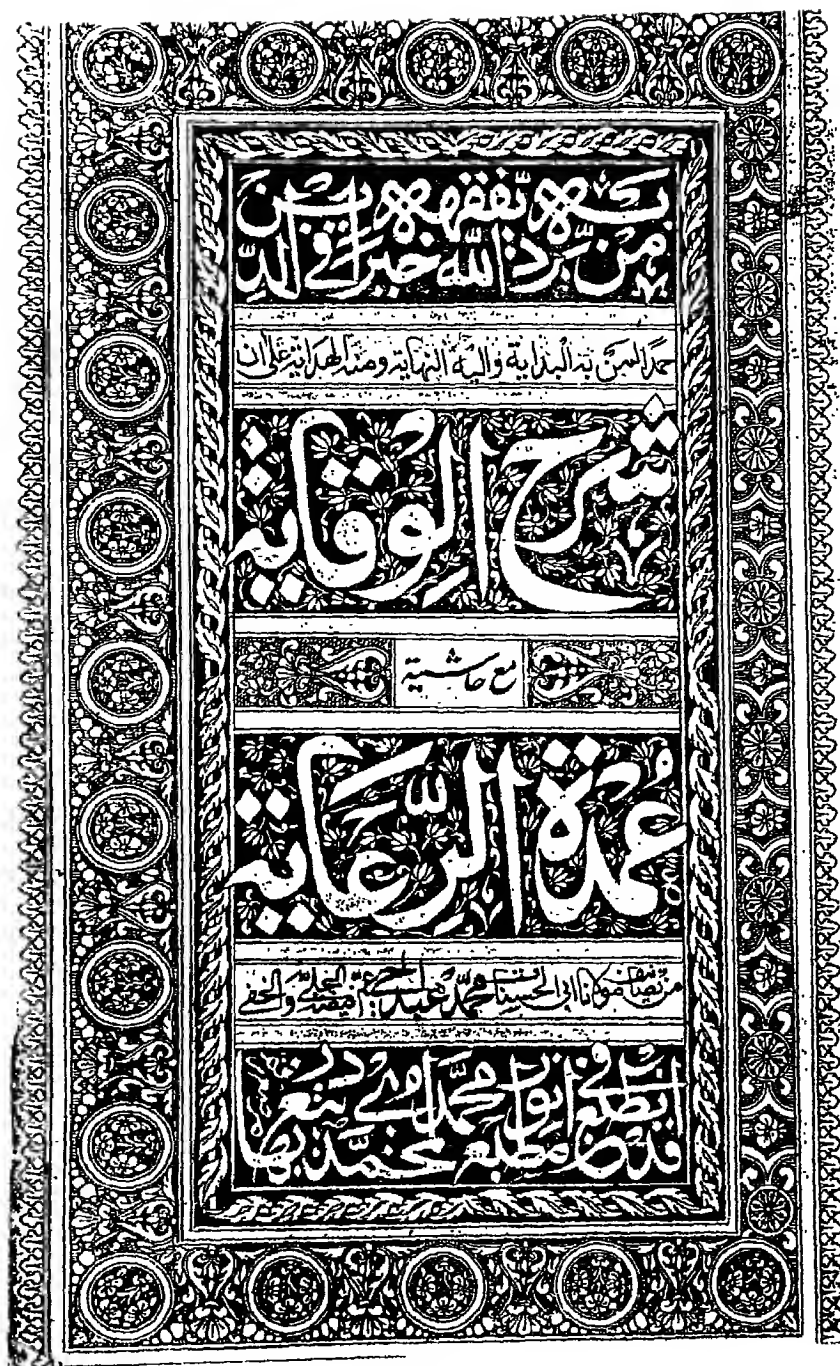 من يرد الله به خيرا يفقهه في الدين
حمدا لمن به البداية واليه النهاية ومنه الهداية على ان
شرح الوقاية
مع حاشية
عمدة الرعاية
من تصانيف مولانا ابى الحسنات محمد عبد الحي والخفي
قد انطبع في محمد